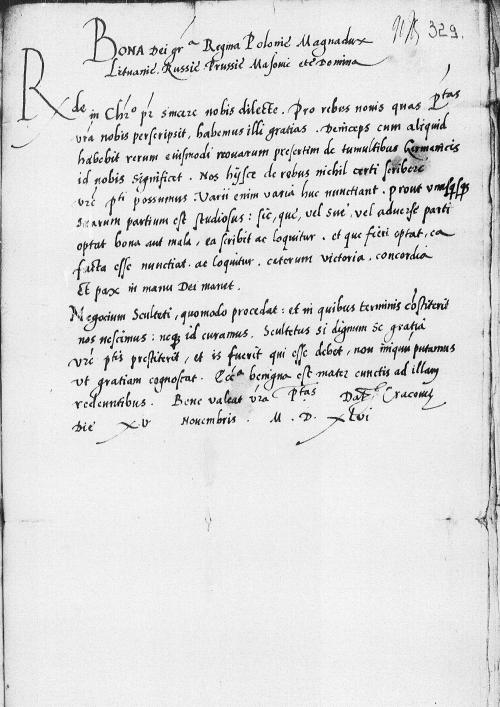 329.
BONA Dei gr̃a Regina Polonię Magnadux
Lituanię. Russię. Prussię. Masouię etc̃ Domina
Rde in Chr̃o pr̃ sincere nobis dilecte. Pro rebus nouis quas Ptas
vr̃a nobis perscripsit, habemus illi gratias. Deinceps cum aliquid
habebit rerum eiusmodi nouarum presertim de tumultibus Germanicis
id nobis significet. Nos hysce de rebus nichil certi scribere
vr̃e pti possumus. Varii enim varia huc nunctiant. prout vnusqsqs
suarum partium est studiosus: sic, que, vel sue, vel aduerse parti
optat bona aut mala, ea scribit ac loquitur. et que fieri optat, ea
facta esse nunctiat. ac loquitur. ceterum victoria. concordia
Et pax in manu Dei manet.
Negocium Sculteti, quomodo procedat: et in quibus terminis cõstiterit
nos nescimus: neq; id curamus. Scultetus si dignum se gratia
vr̃e ptis prestiterit, et is fuerit qui esse debet, non iniquũ putamus
vt gratiam cognoscat. Ecc̃a benigna est mater cunctis ad illam
redeuntibus. Bene valeat vr̃a Ptas Dat̃ Cracouię
Die XV Nouembris. M. D. xlvi